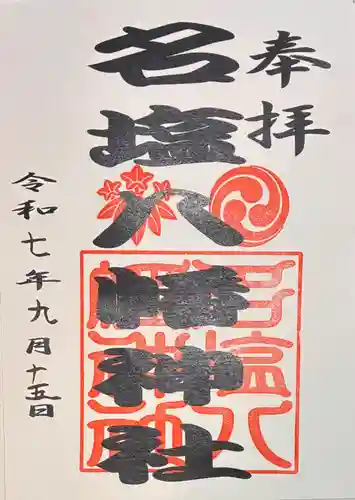 奉拝
名塩八幡神社
令和七年九月十五日
名塩八
幡神社